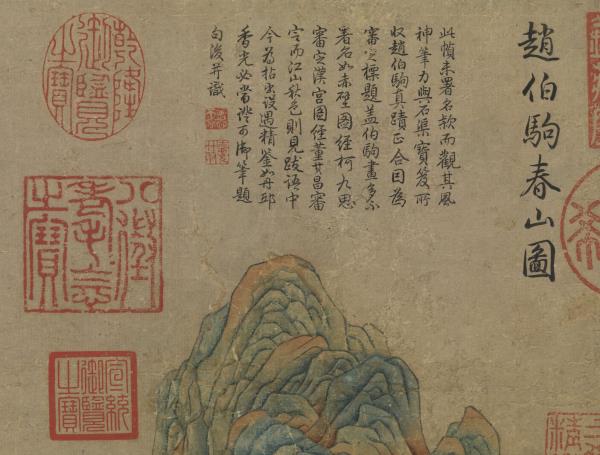 趙伯駒春山圖
此幀未署名款而觀其風
神筆力與石渠寶笈所
收趙伯駒真蹟正合因為
審定標題蓋伯駒畫多不
署名如赤壁圖經柯九思
審定漢宮圖經董其昌審
定而江山秋色則見跋語中
今為拈出設遇精鑒如丹邱
香光必當證可御筆題
句後并識
乾隆
御覽
之寶
八徵
耄念
之寶
宣統
御覽
之寶